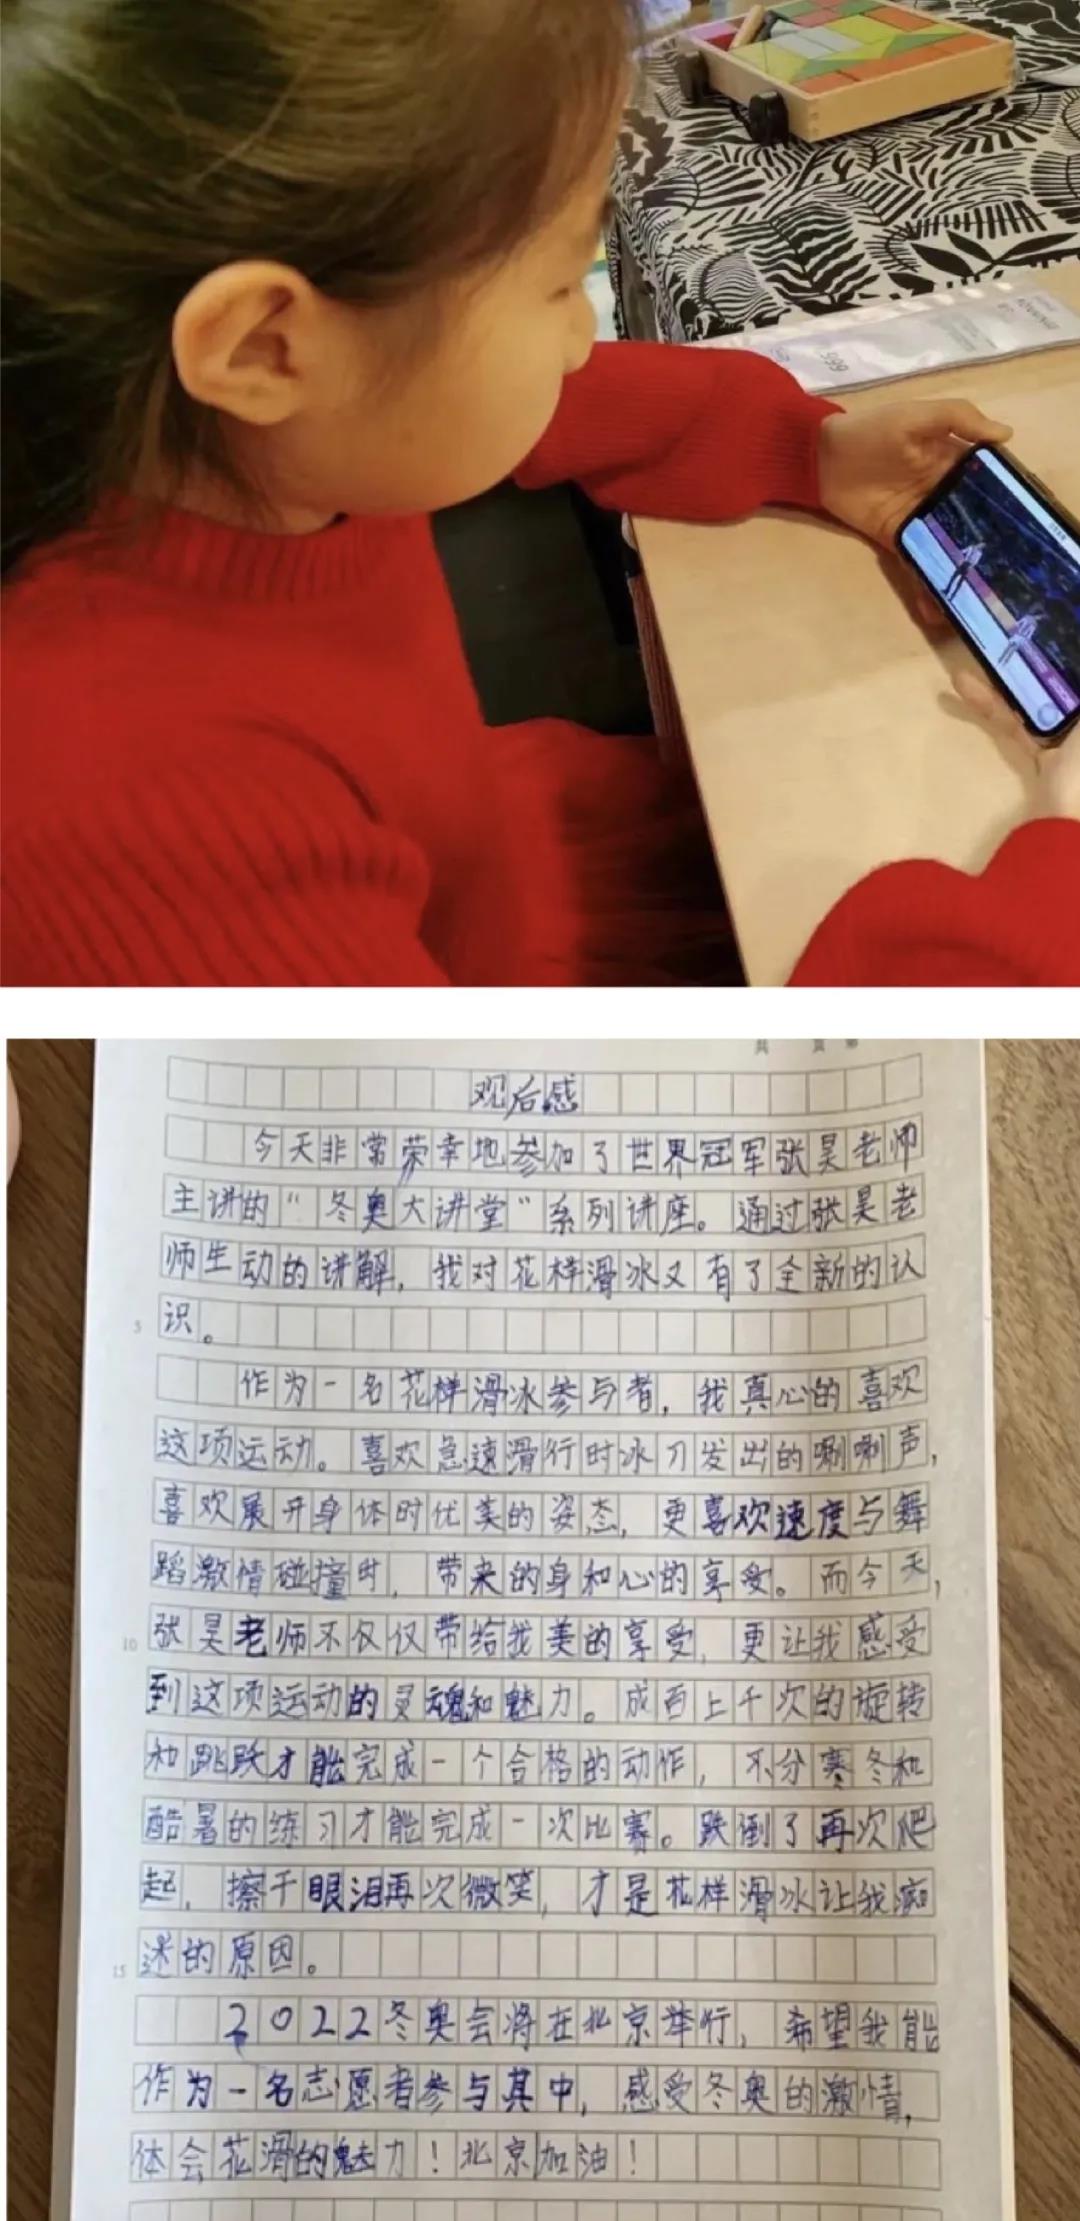 999
共 页 第
观后感
今天非常荣幸地参加了世界冠军张昊老师
主讲的“冬奥大讲堂”系列讲座。通过张昊老
师生动的讲解，我对花样滑冰又有了全新的认
5
识。
作为一名花样滑冰参与者，我真心的喜欢
这项运动。喜欢急速滑行时冰刀发出的唰唰声，
喜欢展开身体时优美的姿态，更喜欢速度与舞
蹈激情碰撞时，带来的身和心的享受。而今天，
10
张昊老师不仅仅带给我美的享受，更让我感受
到这项运动的灵魂和魅力。成百上千次的旋转
和跳跃才能完成一个合格的动作，不分寒冬和
酷暑的练习才能完成一次比赛。跌倒了再次爬
起，擦干眼泪再次微笑，才是花样滑冰让我痴
15
迷的原因。
2022冬奥会将在北京举行，希望我能
作为一名志愿者参与其中，感受冬奥的激情，
体会花滑的魅力！北京加油！